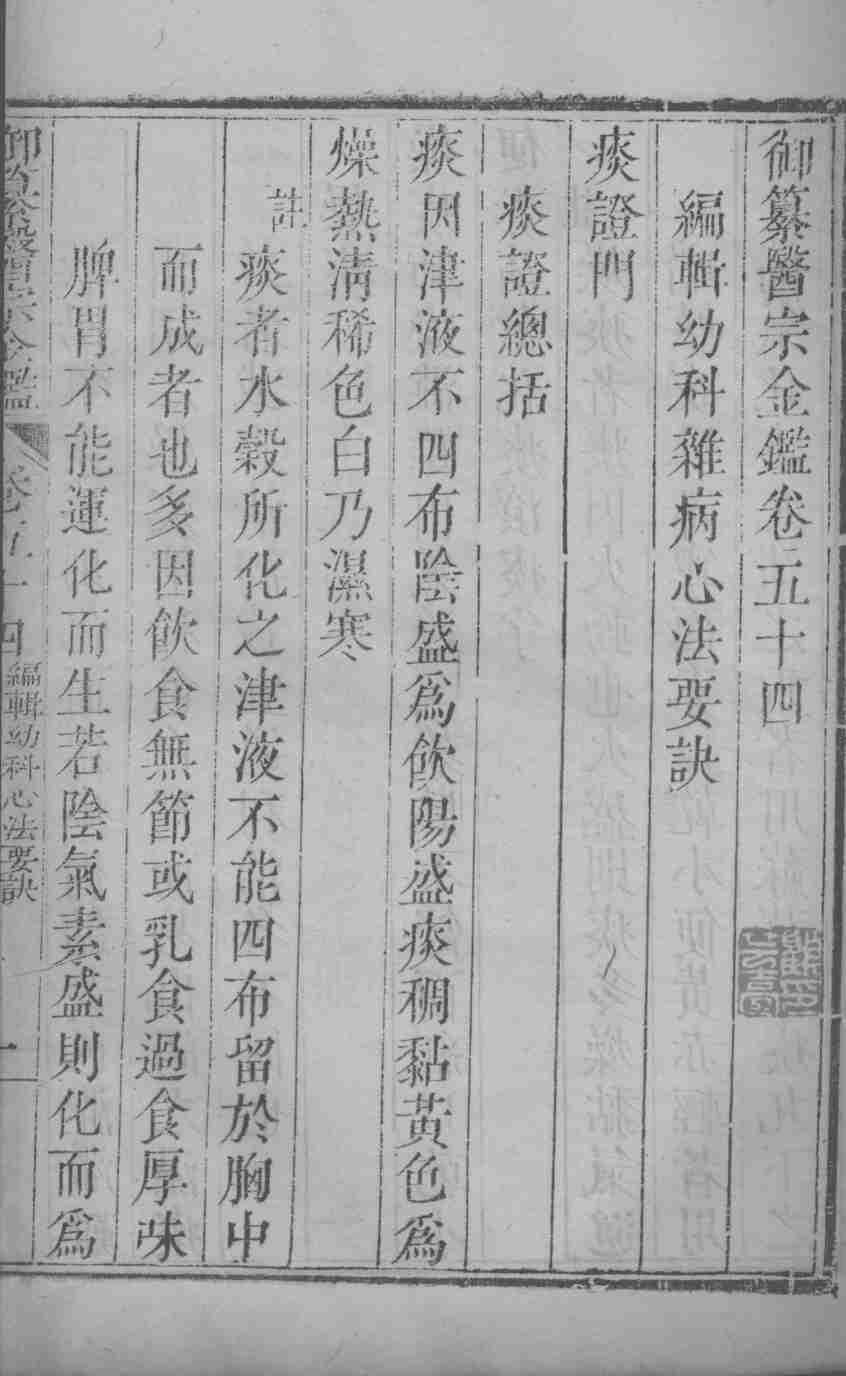 御纂醫宗金鑑卷五十四
編輯幼科雜病心法要訣
痰證門
痰證總括
痰因津液不四布陰盛爲飲陽盛痰稠黏黃色爲
燥熱清稀色白乃濕寒
註痰者水穀所化之津液不能四布留於胸中
而成者也多因飲食無節或乳食過食厚味
脾胃不能運化而生若陰氣素盛則化而爲
御纂醫宗金鑑 卷五十四 編輯幼科心法要訣 一